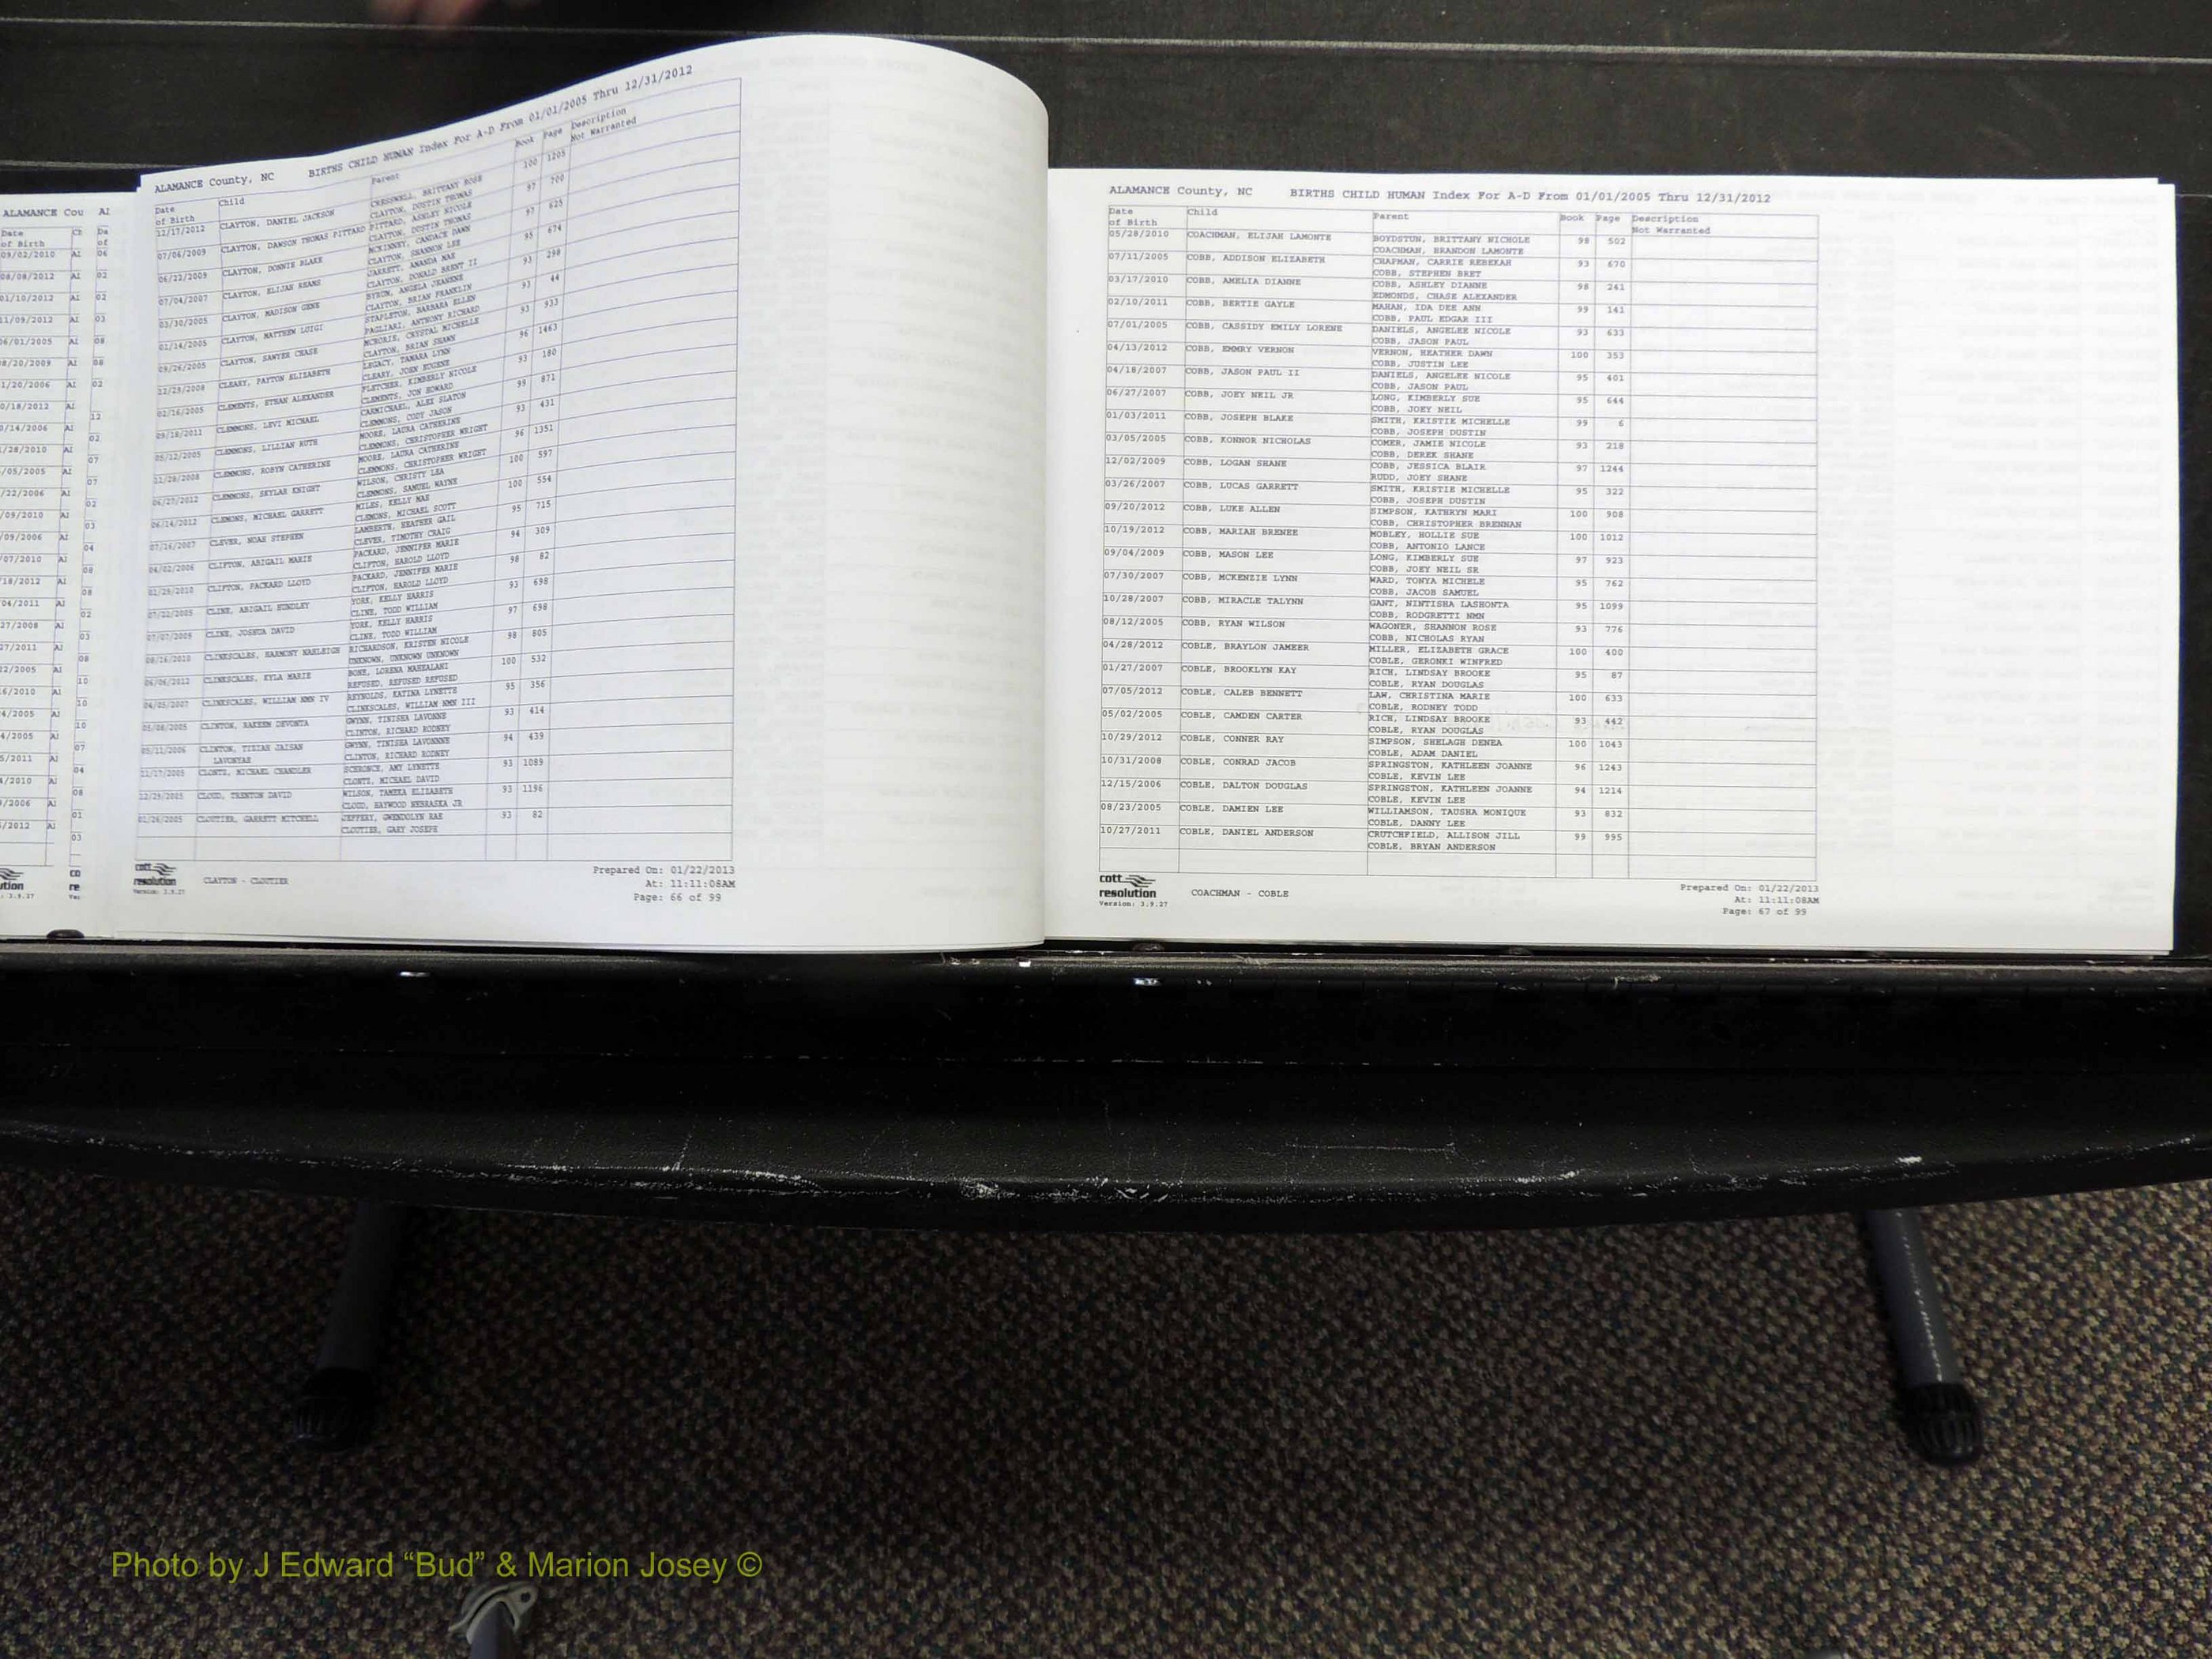 ALAMANCE Cou
Date
of Birth
09/02/2010
08/08/2012
01/10/2012
11/09/2012
ALAMANCE County, NC BIRTHS CHILD HUMAN Index For A-D From 01/01/2005 Thru 12/31/2012
Date of Birth Child Parent Book Page Description Not Warranted
12/17/2012 CLAYTON, DANIEL JACKSON CRESSWELL, BRITTANY ROSE 100 1205
CLAYTON, DUSTIN THOMAS
07/06/2009 CLAYTON, DAWSON THOMAS PITTARD PITTARD, ASHLEY NICOLE 97 700
CLAYTON, DUSTIN THOMAS
06/22/2009 CLAYTON, DONNIE BLAKE MCKINNEY, CANDACE DAWN 97 625
CLAYTON, SHANNON LEE
07/04/2007 CLAYTON, ELIJAH REAMS JARRETT, AMANDA MAE 95 674
CLAYTON, DONALD BRENT II
03/30/2005 CLAYTON, MADISON GENE BYRUM, ANGELA JEANENE 93 298
CLAYTON, BRIAN FRANKLIN
01/14/2005 CLAYTON, MATTHEW LUIGI STAPLETON, BARBARA ELLEN 93 44
PAGLIARI, ANTHONY RICHARD
09/26/2005 CLAYTON, SAWYER CHASE MCRORIE, CRYSTAL MICHELLE 93 933
CLAYTON, BRIAN SHAWN
12/29/2008 CLEARY, PAYTON ELIZABETH LEGACY, TAMARA LYNN 96 1463
CLEARY, JOHN EUGENE
02/16/2005 CLEMENTS, ETHAN ALEXANDER FLETCHER, KIMBERLY NICOLE 93 180
CLEMENTS, JON HOWARD
09/18/2011 CLEMMONS, LEVI MICHAEL CARMICHAEL, ALEX SLATON 99 871
CLEMMONS, CODY JASON
05/12/2005 CLEMMONS, LILLIAN RUTH MOORE, LAURA CATHERINE 93 431
CLEMMONS, CHRISTOPHER WRIGHT
11/28/2008 CLEMMONS, ROBYN CATHERINE MOORE, LAURA CATHERINE 96 1351
CLEMMONS, CHRISTOPHER WRIGHT
06/27/2012 CLEMMONS, SKYLAR KNIGHT WILSON, CHRISTY LEA 100 597
CLEMMONS, SAMUEL WAYNE
06/14/2012 CLEMONS, MICHAEL GARRETT MILES, KELLY MAE 100 554
CLEMONS, MICHAEL SCOTT
07/16/2007 CLEVER, NOAH STEPHEN LAMBERTH, HEATHER GAIL 95 715
CLEVER, TIMOTHY CRAIG
04/02/2006 CLIFTON, ABIGAIL MARIE PACKARD, JENNIFER MARIE 94 309
CLIFTON, HAROLD LLOYD
01/29/2010 CLIFTON, PACKARD LLOYD PACKARD, JENNIFER MARIE 98 82
CLIFTON, HAROLD LLOYD
07/22/2005 CLINE, ABIGAIL HUNDLEY YORK, KELLY HARRIS 93 698
CLINE, TODD WILLIAM
07/07/2009 CLINE, JOSHUA DAVID YORK, KELLY HARRIS 97 698
CLINE, TODD WILLIAM
08/16/2010 CLINKSCALES, HARMONY NASLEIGH RICHARDSON, KRISTEN NICOLE 98 805
UNKNOWN, UNKNOWN UNKNOWN
06/06/2012 CLINKSCALES, KYLA MARIE BONE, LORENA MAHEALANI 100 532
REFUSED, REFUSED REFUSED
04/05/2007 CLINKSCALES, WILLIAM NMN IV REYNOLDS, KATINA LYNETTE 95 356
CLINKSCALES, WILLIAM NMN III
05/08/2005 CLINTON, RAKEEM DEVONTA GWYNN, TINISHA LAVONNE 93 414
CLINTON, RICHARD RODNEY
05/11/2006 CLINTON, TIZIAH JAISAN LAVONYAE GWYNN, TINISHA LAVONNNE 94 439
CLINTON, RICHARD RODNEY
11/17/2005 CLONTZ, MICHAEL CHANDLER SCHRONCE, AMY LYNETTE 93 1089
CLONTZ, MICHAEL DAVID
12/29/2005 CLOUD, TRENTON DAVID WILSON, TAMEKA ELIZABETH 93 1196
CLOUD, HAYWOOD NEBRASKA JR
01/26/2005 CLOUTIER, GARRETT MITCHELL JEFFERY, GWENDOLYN RAE 93 82
CLOUTIER, GARY JOSEPH
cott
resolution CLAYTON - CLOUTIER Prepared On: 01/22/2013
Version: 3.9.27 At: 11:11:08AM
Page: 66 of 99
ALAMANCE County, NC BIRTHS CHILD HUMAN Index For A-D From 01/01/2005 Thru 12/31/2012
Date of Birth Child Parent Book Page Description Not Warranted
05/28/2010 COACHMAN, ELIJAH LAMONTE BOYDSTUN, BRITTANY NICHOLE 98 502
COACHMAN, BRANDON LAMONTE
07/11/2005 COBB, ADDISON ELIZABETH CHAPMAN, CARRIE REBEKAH 93 670
COBB, STEPHEN BRET
03/17/2010 COBB, AMELIA DIANNE COBB, ASHLEY DIANNE 98 241
EDMONDS, CHASE ALEXANDER
02/10/2011 COBB, BERTIE GAYLE MAHAN, IDA DEE ANN 99 141
COBB, PAUL EDGAR III
07/01/2005 COBB, CASSIDY EMILY LORENE DANIELS, ANGELEE NICOLE 93 633
COBB, JASON PAUL
04/13/2012 COBB, EMMRY VERNON VERNON, HEATHER DAWN 100 353
COBB, JUSTIN LEE
04/18/2007 COBB, JASON PAUL II DANIELS, ANGELEE NICOLE 95 401
COBB, JASON PAUL
06/27/2007 COBB, JOEY NEIL JR LONG, KIMBERLY SUE 95 644
COBB, JOEY NEIL
01/03/2011 COBB, JOSEPH BLAKE SMITH, KRISTIE MICHELLE 99 6
COBB, JOSEPH DUSTIN
03/05/2005 COBB, KONNOR NICHOLAS COMER, JAMIE NICOLE 93 218
COBB, DEREK SHANE
12/02/2009 COBB, LOGAN SHANE COBB, JESSICA BLAIR 97 1244
RUDD, JOEY SHANE
03/26/2007 COBB, LUCAS GARRETT SMITH, KRISTIE MICHELLE 95 322
COBB, JOSEPH DUSTIN
09/20/2012 COBB, LUKE ALLEN SIMPSON, KATHRYN MARI 100 908
COBB, CHRISTOPHER BRENNAN
10/19/2012 COBB, MARIAH BRENEE MOBLEY, HOLLIE SUE 100 1012
COBB, ANTONIO LANCE
09/04/2009 COBB, MASON LEE LONG, KIMBERLY SUE 97 923
COBB, JOEY NEIL SR
07/30/2007 COBB, MCKENZIE LYNN WARD, TONYA MICHELE 95 762
COBB, JACOB SAMUEL
10/28/2007 COBB, MIRACLE TALYNN GANT, NINTISHA LASHONTA 95 1099
COBB, RODGRETTI NMN
08/12/2005 COBB, RYAN WILSON WAGONER, SHANNON ROSE 93 776
COBB, NICHOLAS RYAN
04/28/2012 COBLE, BRAYLON JAMEER MILLER, ELIZABETH GRACE 100 400
COBLE, GERONKI WINFRED
01/27/2007 COBLE, BROOKLYN KAY RICH, LINDSAY BROOKE 95 87
COBLE, RYAN DOUGLAS
07/05/2012 COBLE, CALEB BENNETT LAW, CHRISTINA MARIE 100 633
COBLE, RODNEY TODD
05/02/2005 COBLE, CAMDEN CARTER RICH, LINDSAY BROOKE 93 442
COBLE, RYAN DOUGLAS
10/29/2012 COBLE, CONNER RAY SIMPSON, SHELAGH DENEA 100 1043
COBLE, ADAM DANIEL
10/31/2008 COBLE, CONRAD JACOB SPRINGSTON, KATHLEEN JOANNE 96 1243
COBLE, KEVIN LEE
12/15/2006 COBLE, DALTON DOUGLAS SPRINGSTON, KATHLEEN JOANNE 94 1214
COBLE, KEVIN LEE
08/23/2005 COBLE, DAMIEN LEE WILLIAMSON, TAUSHA MONIQUE 93 832
COBLE, DANNY LEE
10/27/2011 COBLE, DANIEL ANDERSON CRUTCHFIELD, ALLISON JILL 99 995
COBLE, BRYAN ANDERSON
cott
resolution COACHMAN - COBLE Prepared On: 01/22/2013
Version: 3.9.27 At: 11:11:08AM
Page: 67 of 99
Photo by J Edward “Bud” & Marion Josey ©